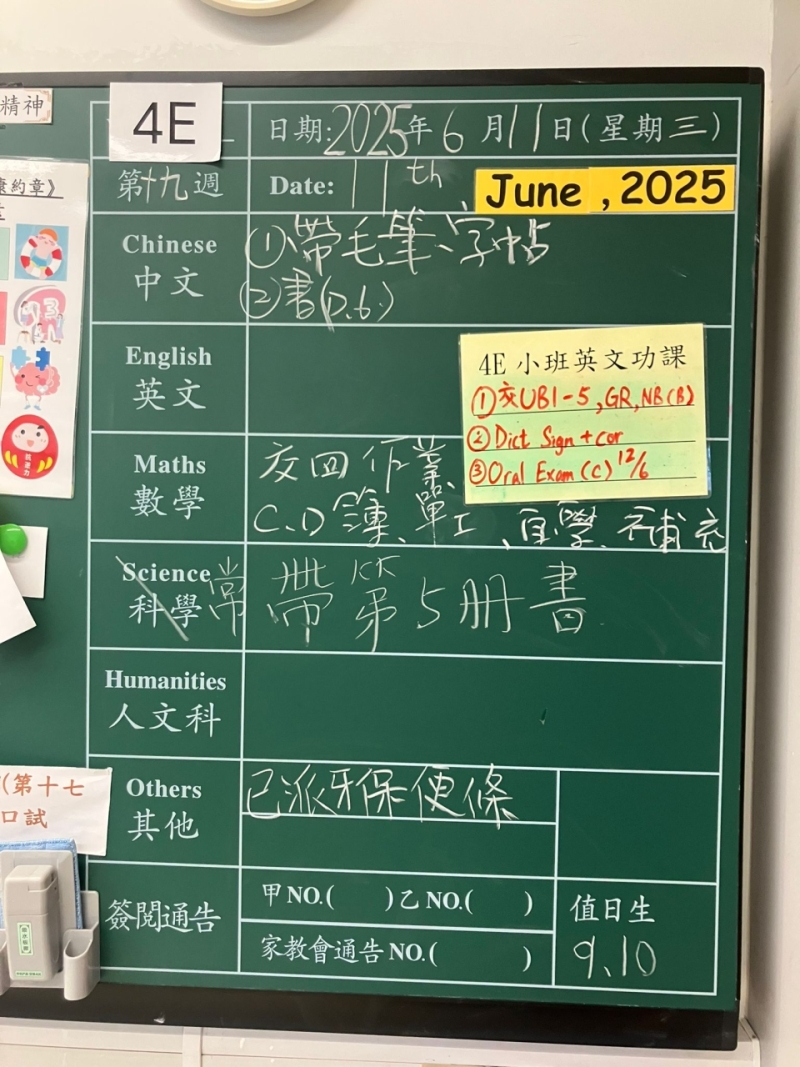 精神
4E
日期:2025年6月11日(星期三)
康約章》
第十九週
Date: 11th June, 2025
Chinese
中文
①帶毛筆、字帖
②書(P.6)
English
英文
4E 小班英文功課
①交UB1-5, GR, NB(B)
②Dict Sign + cor
③Oral Exam (C) 12/6
Maths
數學
交回作業、
C.D 簿、單工、自學、補充
Science
科學
常
帶 KK 第5册書
Humanities
人文科
(第十七
口試
Others
其他
已派牙保便條
簽閱通告
甲 NO.( ) 乙 NO.( )
家教會通告 NO.( )
值日生
9、10